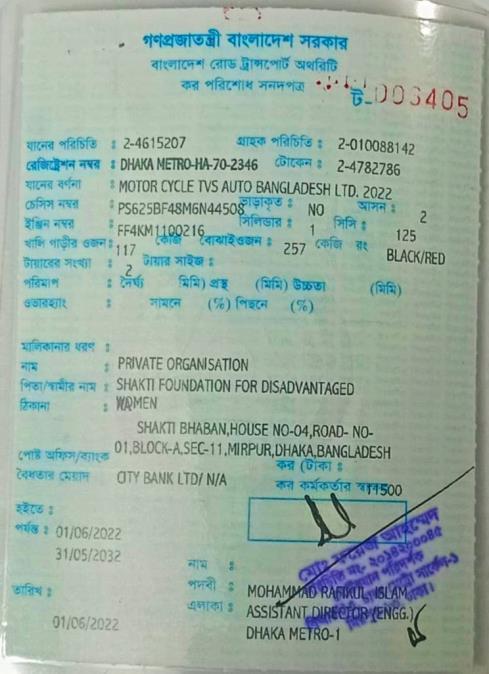 গণপ্রজাতন্ত্রী বাংলাদেশ সরকার
বাংলাদেশ রোড ট্রান্সপোর্ট অথরিটি
কর পরিশোধ সনদপত্র
ট-003405
যানের পরিচিতি : 2-4615207 গ্রাহক পরিচিতি : 2-010088142
রেজিস্ট্রেশন নম্বর : DHAKA METRO-HA-70-2346 টোকেন : 2-4782786
যানের বর্ণনা : MOTOR CYCLE TVS AUTO BANGLADESH LTD. 2022
চেসিস নম্বর : PS625BF48M6N44508 ভাড়াকৃত : NO আসন : 2
ইঞ্জিন নম্বর : FF4KM1100216 সিলিন্ডার : 1 সিসি : 125
খালি গাড়ীর ওজন : 117 কেজি বোঝাই ওজন : 257 কেজি রং BLACK/RED
টায়ারের সংখ্যা : 2 টায়ার সাইজ :
পরিমাপ : দৈর্ঘ্য (মিমি) প্রস্থ (মিমি) উচ্চতা (মিমি)
ওভারহ্যাং : সামনে (%) পিছনে (%)
মালিকানার ধরণ :
নাম : PRIVATE ORGANISATION
পিতা/স্বামীর নাম : SHAKTI FOUNDATION FOR DISADVANTAGED
ঠিকানা : WOMEN
SHAKTI BHABAN,HOUSE NO-04,ROAD- NO-
01,BLOCK-A,SEC-11,MIRPUR,DHAKA,BANGLADESH
পোষ্ট অফিস/ব্যাংক কর (টাকা :
বৈধতার মেয়াদ CITY BANK LTD/ N/A কর কর্মকর্তার 11500
হইতে :
পর্যন্ত : 01/06/2022
31/05/2032
নাম :
পদবী : MOHAMMAD RAFIKUL ISLAM
তারিখ : এলাকা : ASSISTANT DIRECTOR (ENGG.)
01/06/2022 DHAKA METRO-1